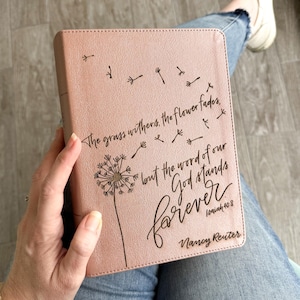 The grass withers, the flower fades,
but the word of our
God stands
forever
Isaiah 40:8
Nancy Reuter